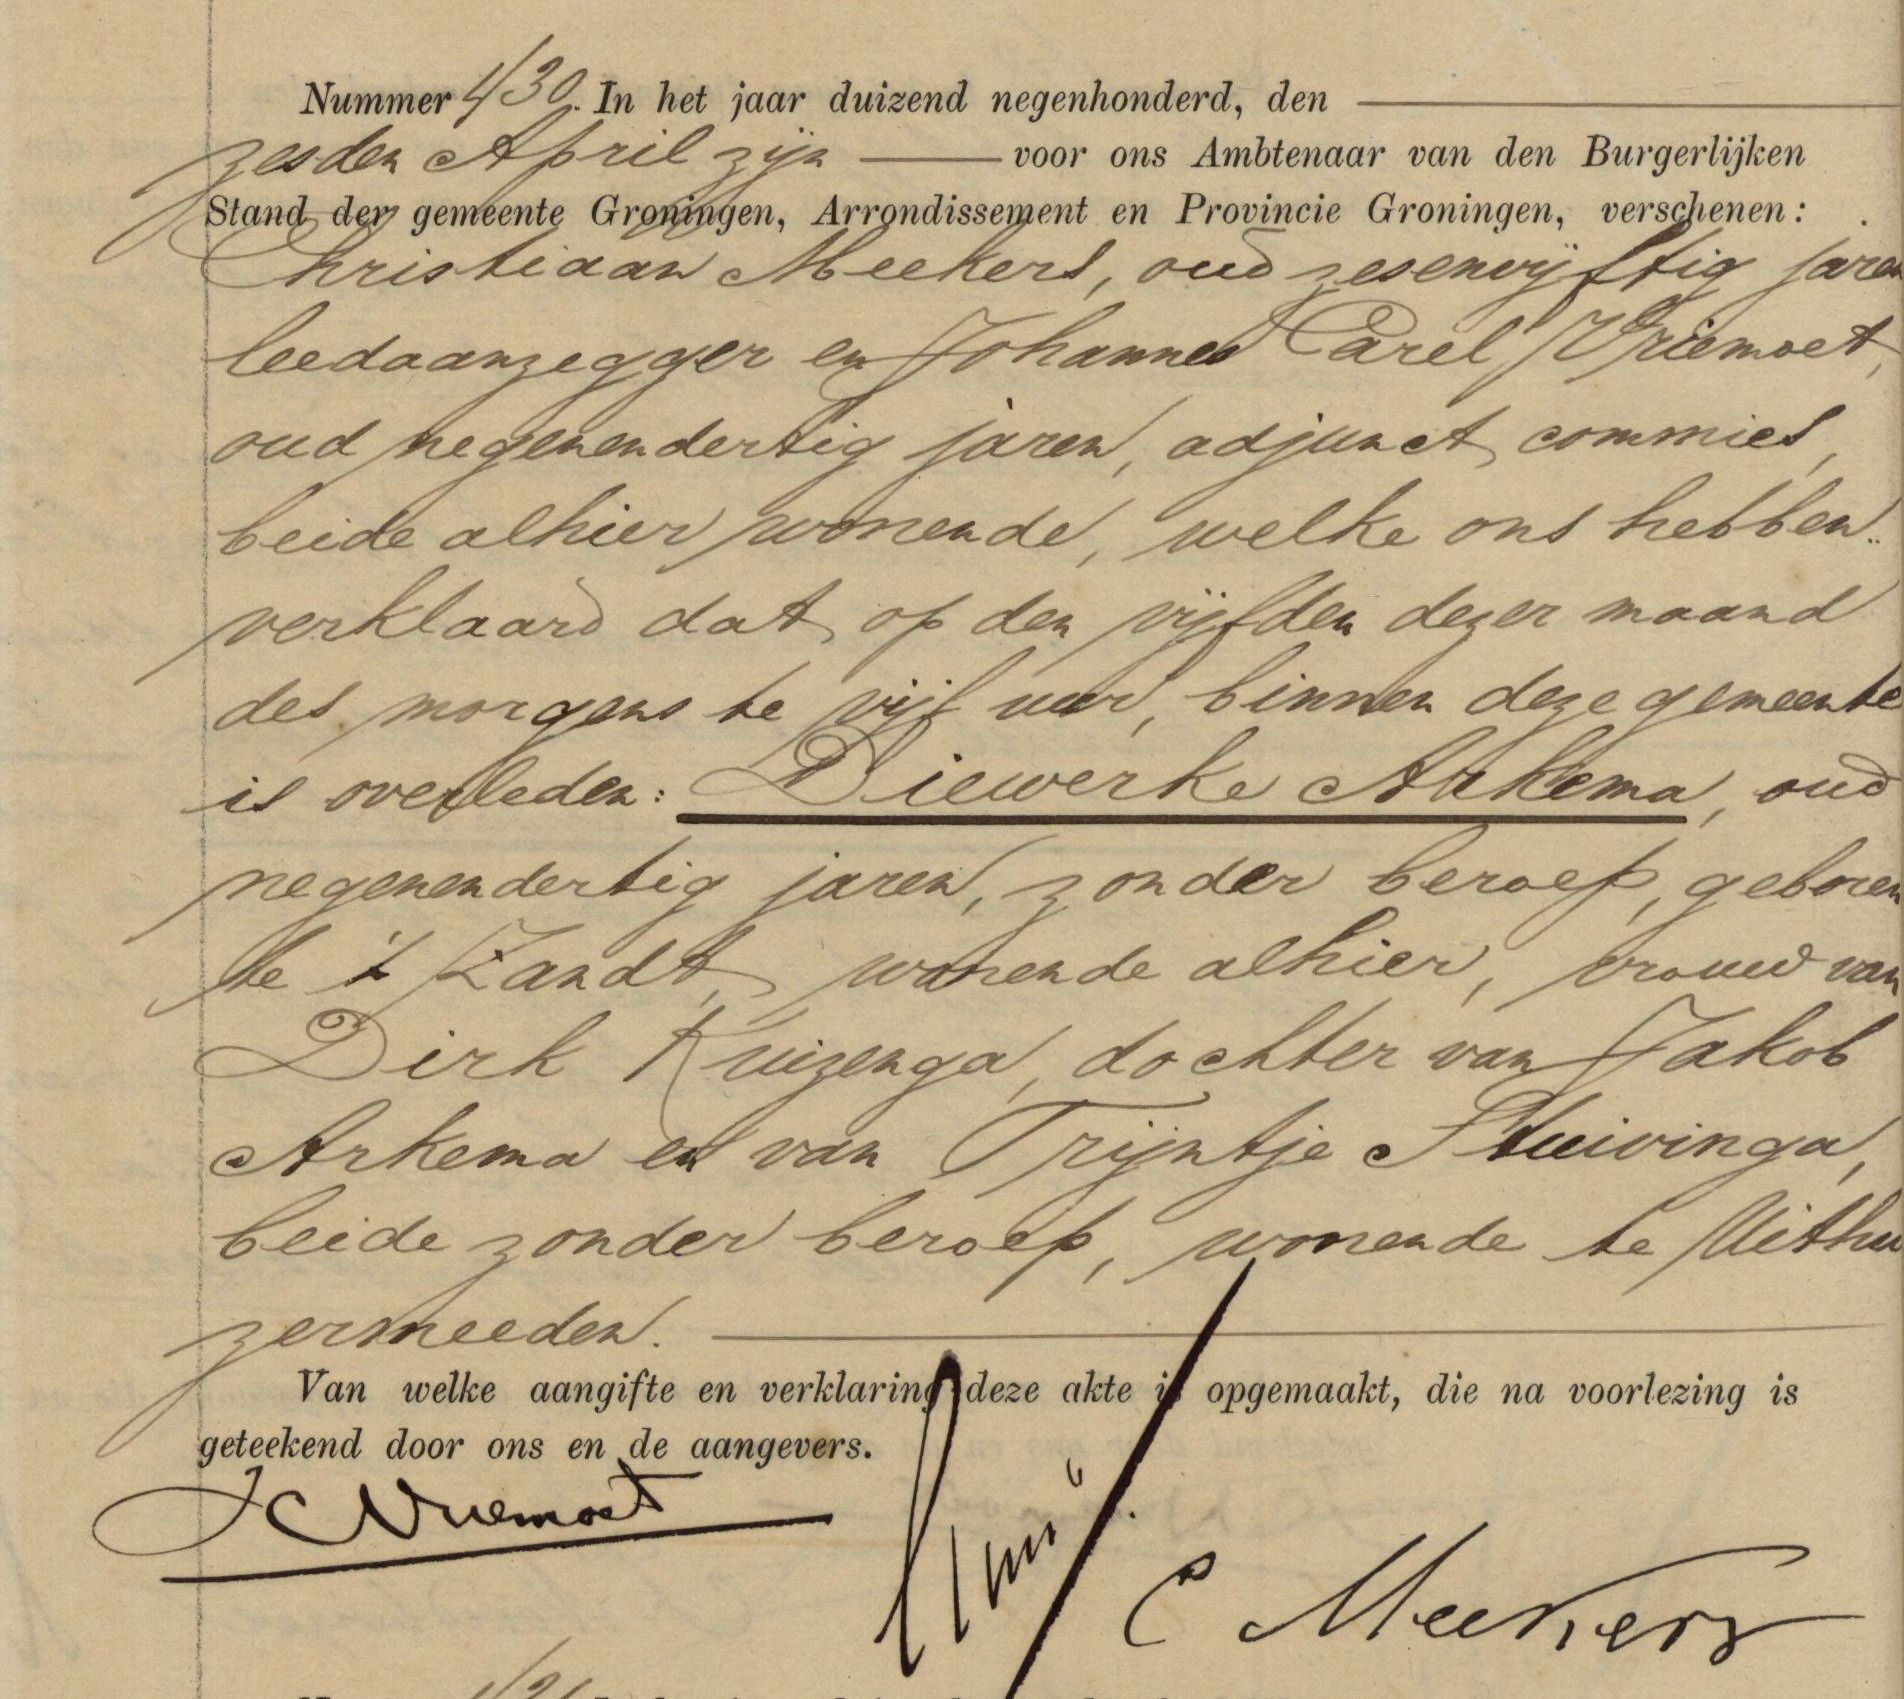 Nummer 430. In het jaar duizend negenhonderd, den
zesden April zijn voor ons Ambtenaar van den Burgerlijken
Stand der gemeente Groningen, Arrondissement en Provincie Groningen, verschenen:
Christiaan Meekers, oud zesenvijftig jaren
leedaanzegger en Johannes Carel Vriemoet,
oud negenendertig jaren, adjunct commies,
beide alhier wonende, welke ons hebben
verklaard dat op den vijfden dezer maand
des morgens te vijf uur, binnen deze gemeente
is overleden: Diewerke Arkema, oud
negenendertig jaren, zonder beroep, geboren
te 't Zandt, wonende alhier, vrouw van
Dirk Kuizenga, dochter van Jakob
Arkema en van Trijntje Stuivinga,
beide zonder beroep, wonende te Uithui
zermeeden.
Van welke aangifte en verklaring deze akte is opgemaakt, die na voorlezing is
geteekend door ons en de aangevers.
JC Vriemoet
C Meekers